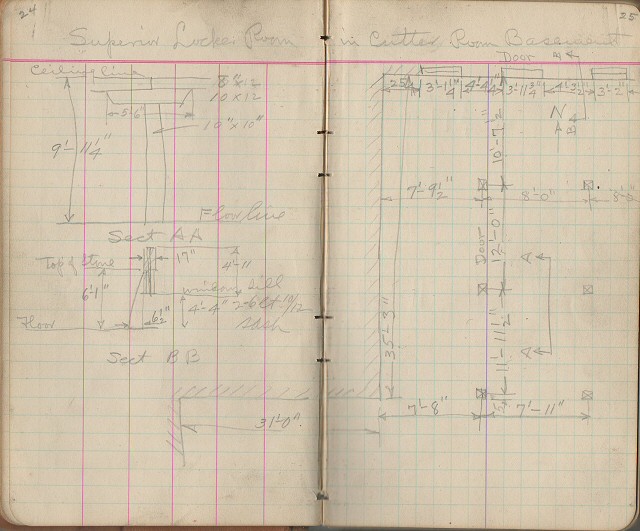 24
25
Superior Locker Room in Cutter Room Basement
Ceiling line
8"x12
10x12
5'-6"
10"x10"
9'-11 1/4"
Floor line
Sect AA
Top of Stone
17"
4'-11
6'-1"
window sill
4'-4"
Sash
Floor
6 1/2"
Sect BB
31'-0"
Door
B
3'-1 1/4"
4'-4 1/4"
3'-11 3/4"
3'-2"
N
A
B
10'-7 1/2
7'-9 1/2"
8'-0"
8'-0
Door
12'-0"
A
35'-3"
11'-11 1/2"
A
7'-8"
7'-11"